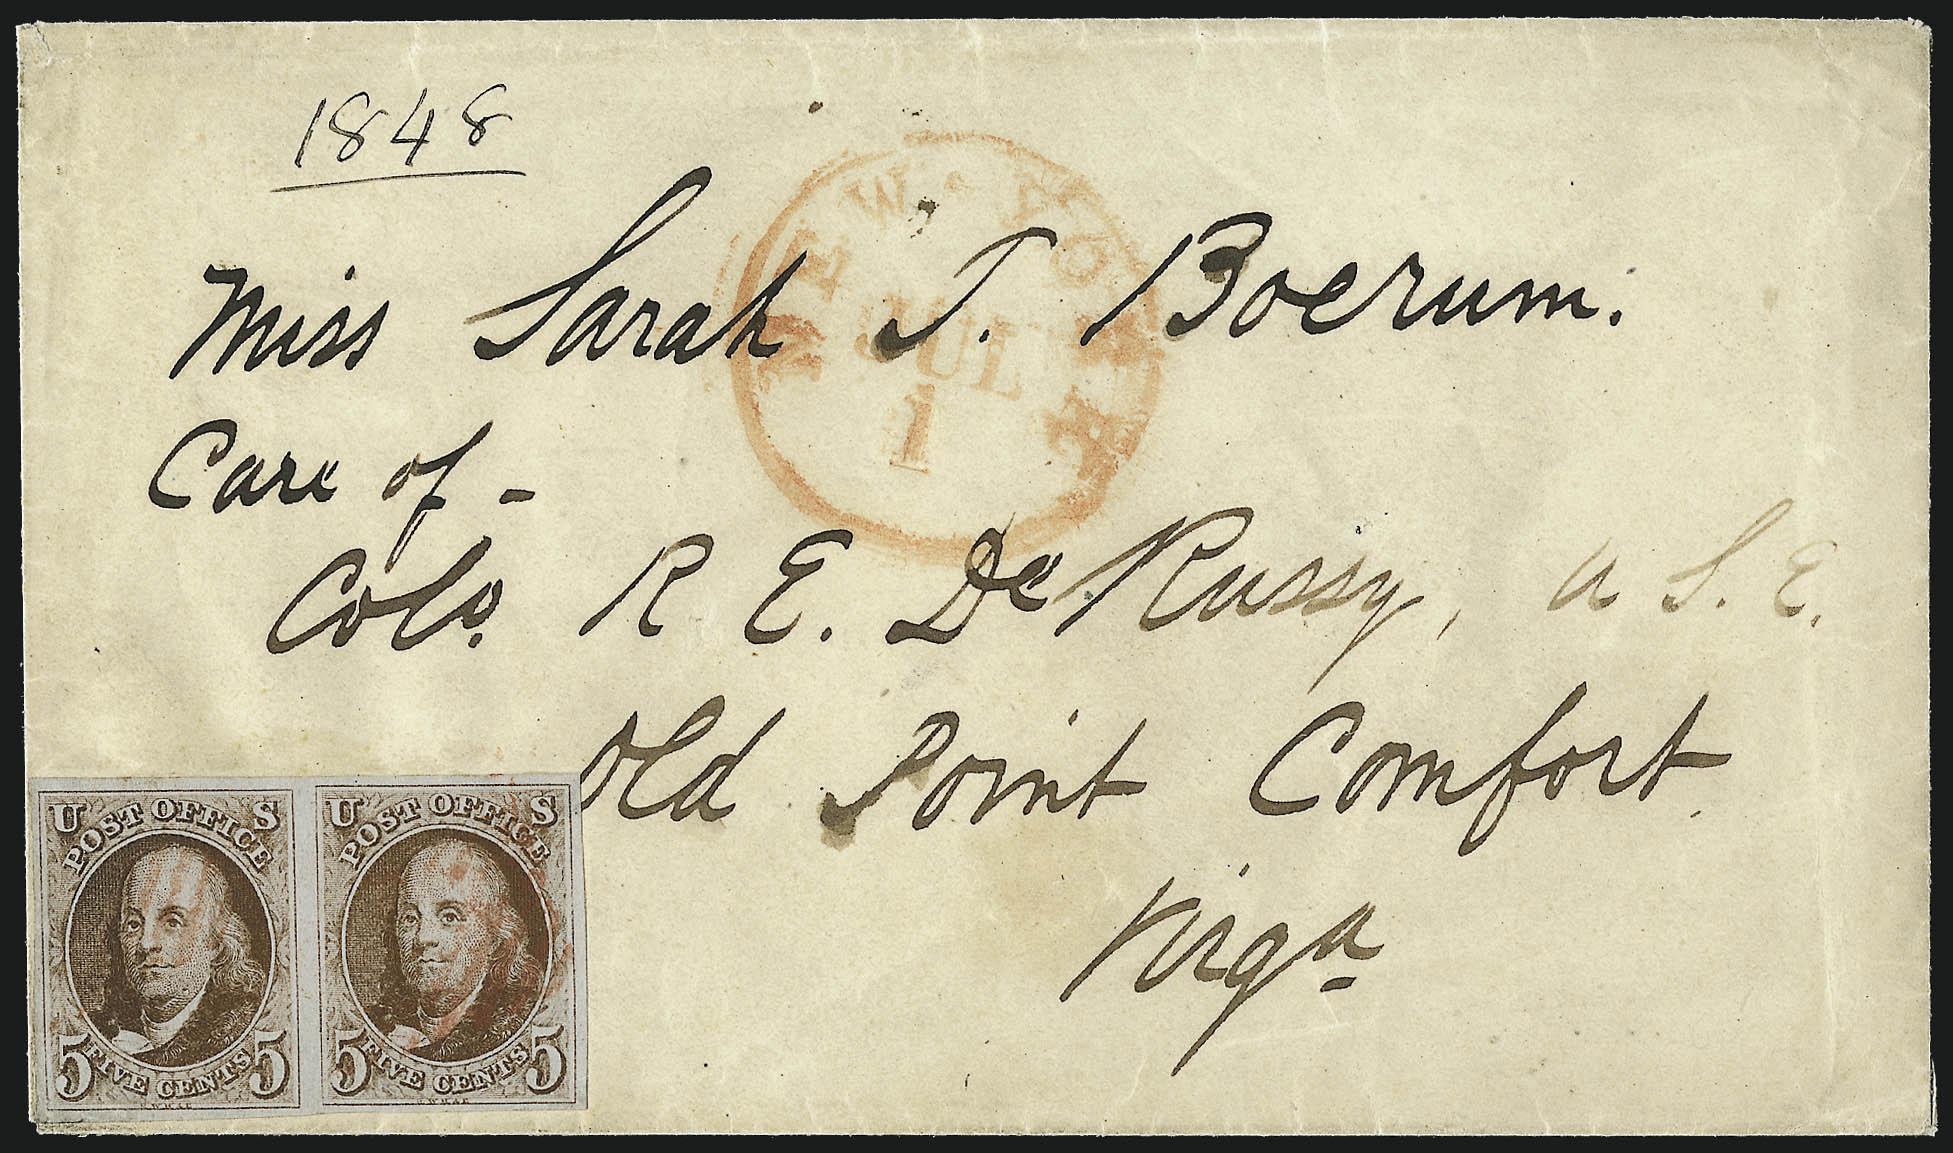 1848
NEW-YORK
JUL
1
N.Y.
Miss Sarah J. Boerum.
Care of -
Colo. R E. De Russy, U S. E.
Old Point Comfort
Virga
U S
POST OFFICE
5 FIVE CENTS 5
U S
POST OFFICE
5 FIVE CENTS 5